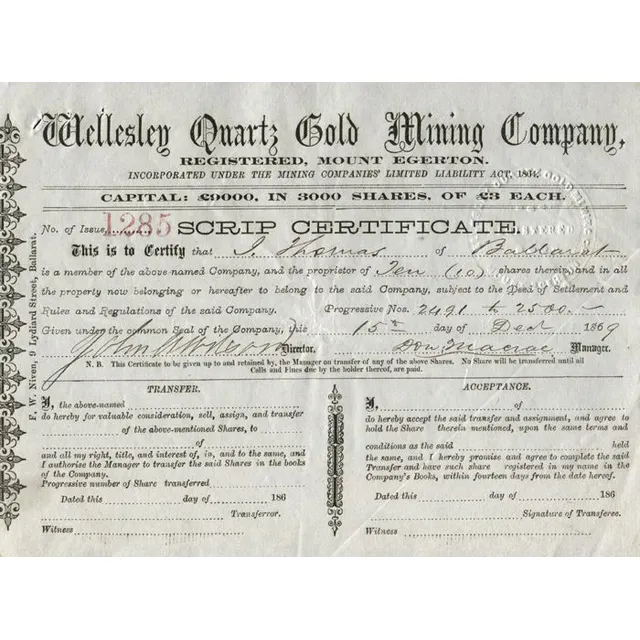 Wellesley Quartz Gold Mining Company,
REGISTERED, MOUNT EGERTON.
INCORPORATED UNDER THE MINING COMPANIES' LIMITED LIABILITY ACT, 1864.
CAPITAL: £9000, IN 3000 SHARES, OF £3 EACH.
No. of Issue, 1285 SCRIP CERTIFICATE.
This is to Certify that J. Thomas of Ballarat
is a member of the above-named Company, and the proprietor of Ten (10) shares therein, and in all
the property now belonging or hereafter to belong to the said Company, subject to the Deed of Settlement and
Rules and Regulations of the said Company. Progressive Nos. 2491 to 2500.
Given under the common Seal of the Company, this 15th day of Decr 1869
John Director. Don Macrae Manager.
N. B. This Certificate to be given up to and retained by, the Manager on transfer of any of the above Shares. No Share will be transferred until all
Calls and Fines due by the holder thereof, are paid.
TRANSFER.
I, the above-named
do hereby for valuable consideration, sell, assign, and transfer
of the above-mentioned Shares, to
of
and all my right, title, and interest of, in, and to the same, and
I authorise the Manager to transfer the said Shares in the books
of the Company.
Progressive number of Share transferred
Dated this day of 186
Transferror.
Witness
ACCEPTANCE.
I, of
do hereby accept the said transfer and assignment, and agree to
hold the Share therein mentioned, upon the same terms and
conditions as the said held
the same, and I hereby promise and agree to complete the said
Transfer and have such share registered in my name in the
Company's Books, within fourteen days from the date hereof.
Dated this day of 186
Signature of Transferee.
Witness
F. W. Niven, 9 Lydiard Street, Ballarat.